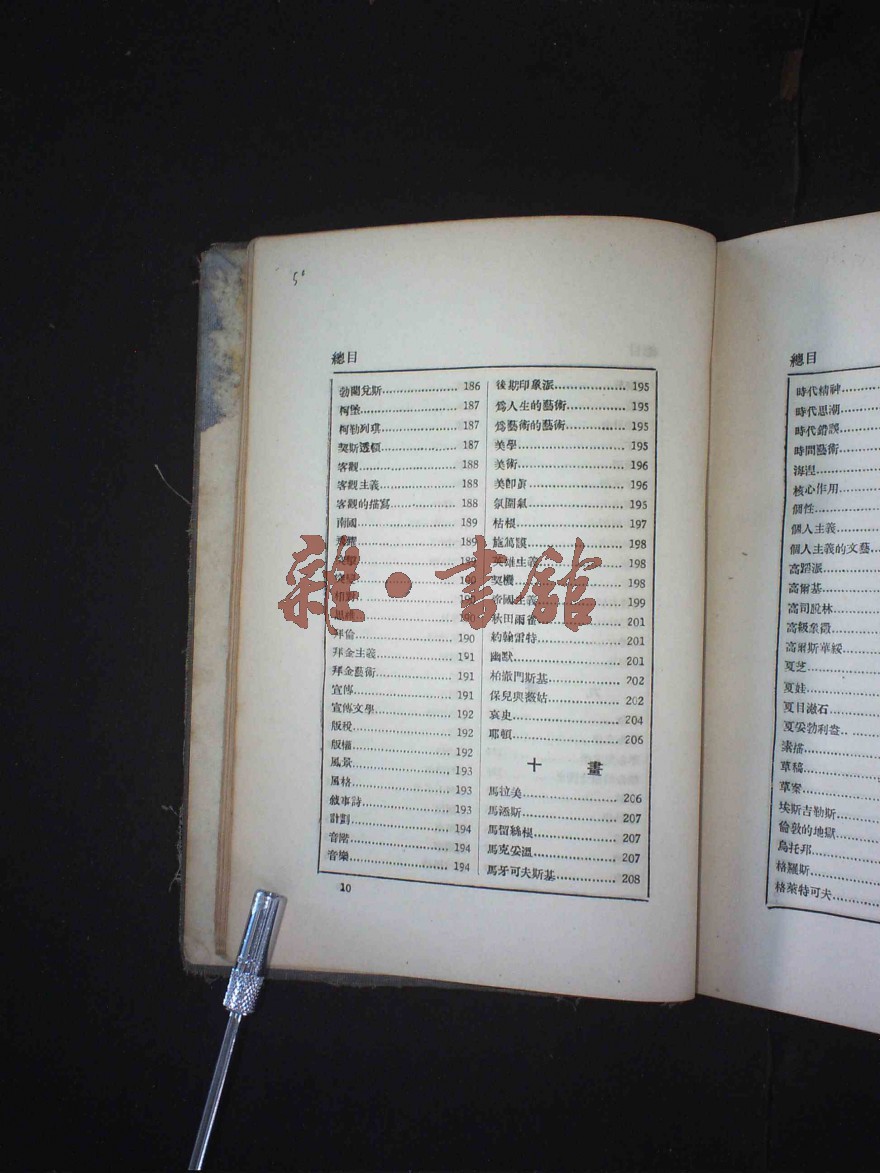 5
總目
勃蘭兌斯 186
柯堡 187
柯勒列琪 187
契斯透頓 187
客觀 188
客觀主義 188
客觀的描寫 188
南國 189
189
190
190
190
拜倫 190
拜金主義 191
拜金藝術 191
宣傳 191
宣傳文學 192
版稅 192
版權 192
風景 193
風格 193
敍事詩 193
計劃 194
音階 194
音樂 194
後期印象派 195
爲人生的藝術 195
爲藝術的藝術 195
美學 195
美術 196
美卽眞 196
氛圍氣 195
枯根 197
施篤謨 198
英雄主義 198
契機 198
帝國主義 199
秋田雨雀 201
約翰雷特 201
幽默 201
柏撒門斯基 202
保兒與薇姑 202
哀史 204
耶頓 206
十畫
馬拉美 206
馬洛斯 207
馬賀絲根 207
馬克妥溫 207
馬牙可夫斯基 208
10
總目
時代精神
時代思潮
時代錯誤
時間藝術
海涅
核心作用
個性
個人主義
個人主義的文藝
高蹈派
高爾基
高司說林
高級象徵
高爾斯華綏
夏芝
夏娃
夏目漱石
夏妥勃利盎
素描
草稿
草案
埃斯吉勒斯
倫敦的地獄
烏托邦
格羅斯
格萊特可夫
雜·書館